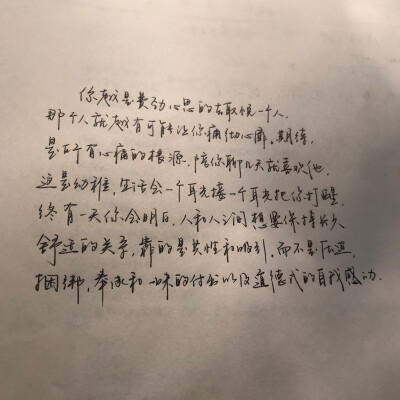 你越是费劲心思的去取悦一个人，
那个人就越有可能让你痛彻心扉。期待，
是所有心痛的根源，陪你聊几天就喜欢他，
这是幼稚，生活会一个耳光接一个耳光把你打醒。
终有一天你会明白，人和人之间想要保持长久
舒适的关系，靠的是共性和吸引，而不是压迫，
捆绑，奉承和一味的付出以及道德式的自我感动.